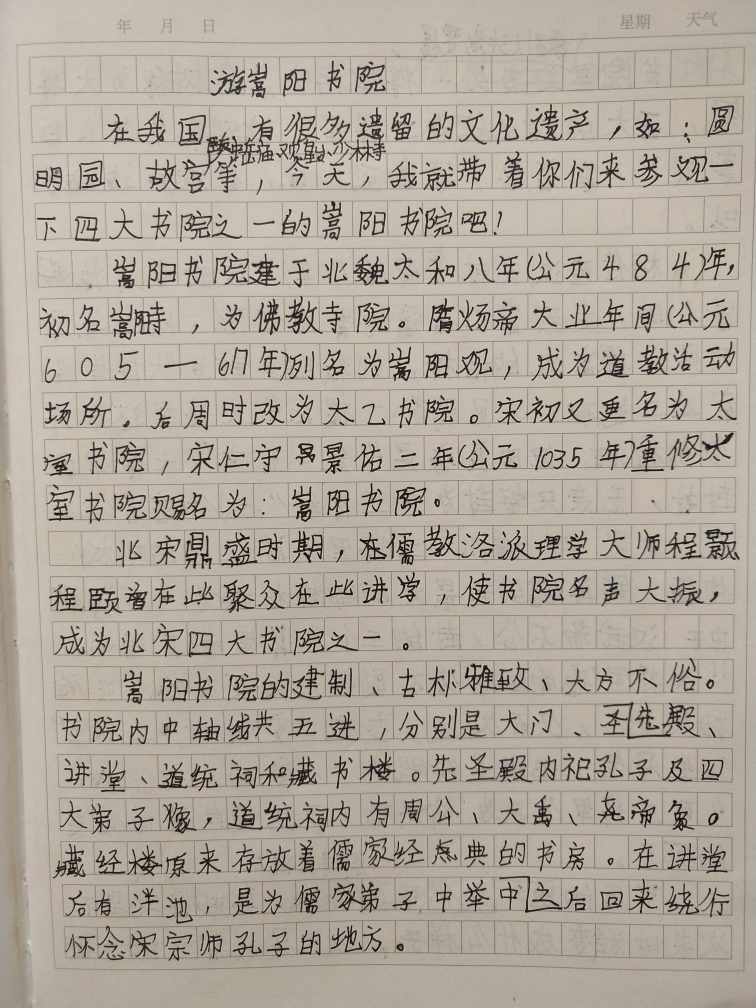 年 月 日 星期 天气
游嵩阳书院
在我国，有很多遗留的文化遗产，如：圆
中岳庙、观星台、少林寺
明园、故宫等，今天，我就带着你们来参观一
下四大书院之一的嵩阳书院吧！
嵩阳书院建于北魏太和八年(公元484)年，
初名嵩阳寺，为佛教寺院。隋炀帝大业年间(公元
605—617年)列名为嵩阳观，成为道教活动
场所。后周时改为太乙书院。宋初又更名为太
室书院，宋仁守景佑二年(公元1035年)重修太
室书院赐名为：嵩阳书院。
北宋鼎盛时期，在儒教洛派理学大师程颢
程颐曾在此聚众在此讲学，使书院名声大振，
成为北宋四大书院之一。
嵩阳书院的建制、古朴雅致、大方不俗。
书院内中轴线共五进，分别是大门、圣先殿、
讲堂、道统祠和藏书楼。先圣殿内祀孔子及四
大弟子像，道统祠内有周公、大禹、尧帝象。
藏经楼原来存放着儒家经典的书房。在讲堂
后有泮池，是为儒家弟子中举中之后回来绕行
怀念宋宗师孔子的地方。